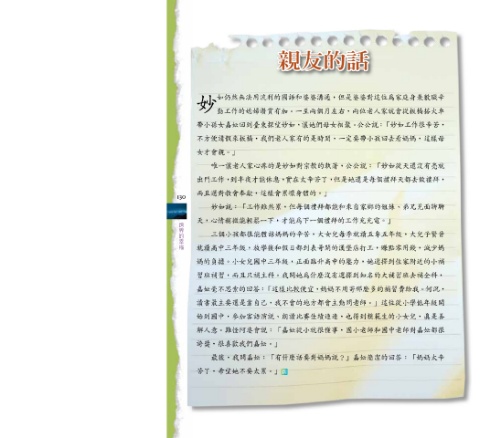 親友的話
妙如仍然無法用流利的國語和婆婆溝通，但是婆婆對這位為家庭身兼數職辛
勤工作的媳婦讚賞有加。一至兩個月左右，兩位老人家就會從板橋搭火車
帶小孫女嘉妘回到臺東探望妙如，讓她們母女相聚。公公說：「妙如工作很辛苦，
不方便請假來板橋，我們老人家有的是時間，一定要帶小孫回去看媽媽，這樣母
女才會親。」
唯一讓老人家心疼的是妙如對宗教的執著，公公說：「妙如從天還沒有亮就
出門工作，到半夜才能休息，實在太辛苦了，但是她還是每個禮拜天都去做禮拜，
而且遇對教會奉獻，這樣會累壞身體的。」
妙如說：「工作雖然累，但每個禮拜都能和來自家鄉的姐妹、弟兄見面聊聊
天，心情能放鬆一下，才能為下一個禮拜的工作充充電。」
三個小孩都很能體諒媽媽的辛苦，大女兒每學就讀五專五年級，大兒子晉晉
就讀高中三年級，放學後和假日都到表哥開的漢堡店打工，賺點零用錢，減少媽
媽的負擔。小女兒國中三年級，正面臨升高中的壓力，她選擇到住家附近的小補
習班補習，而且只補主科，我問她為什麼沒有選擇到知名的大補習班去補全科，
嘉妘毫不思索的回答：「這樣比較便宜，媽媽不用寄那麼多的補習費給我。何況，
讀書最主要還是靠自己，我不會的地方都會主動問老師。」這位從小學低年級開
始到國中，參加客語演說、朗讀比賽屢獲佳績，也得到模範生的小女兒，真是善
解人意。難怪阿婆會說：「嘉妘從小就很懂事，國小老師和國中老師對嘉妘都很
誇獎，很喜歡我們嘉妘。」
最後，我問嘉妘：「有什麼話要對媽媽說？」嘉妘靦腆的回答：「媽媽太辛
苦了，希望她不要太累。」
130